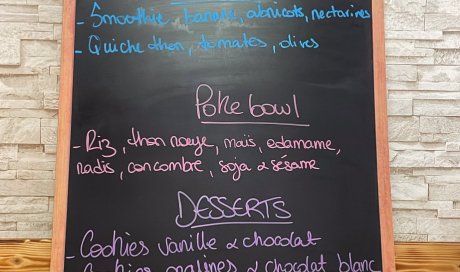 - Smoothie banane, abricots, nectarines
- Quiche thon, tomates, olives
Poke bowl
- Riz, thon rouge, maïs, edamame,
radis, concombre, soja & sésame
DESSERTS
- Cookies vanille & chocolat
- Cookies pralines & chocolat blanc